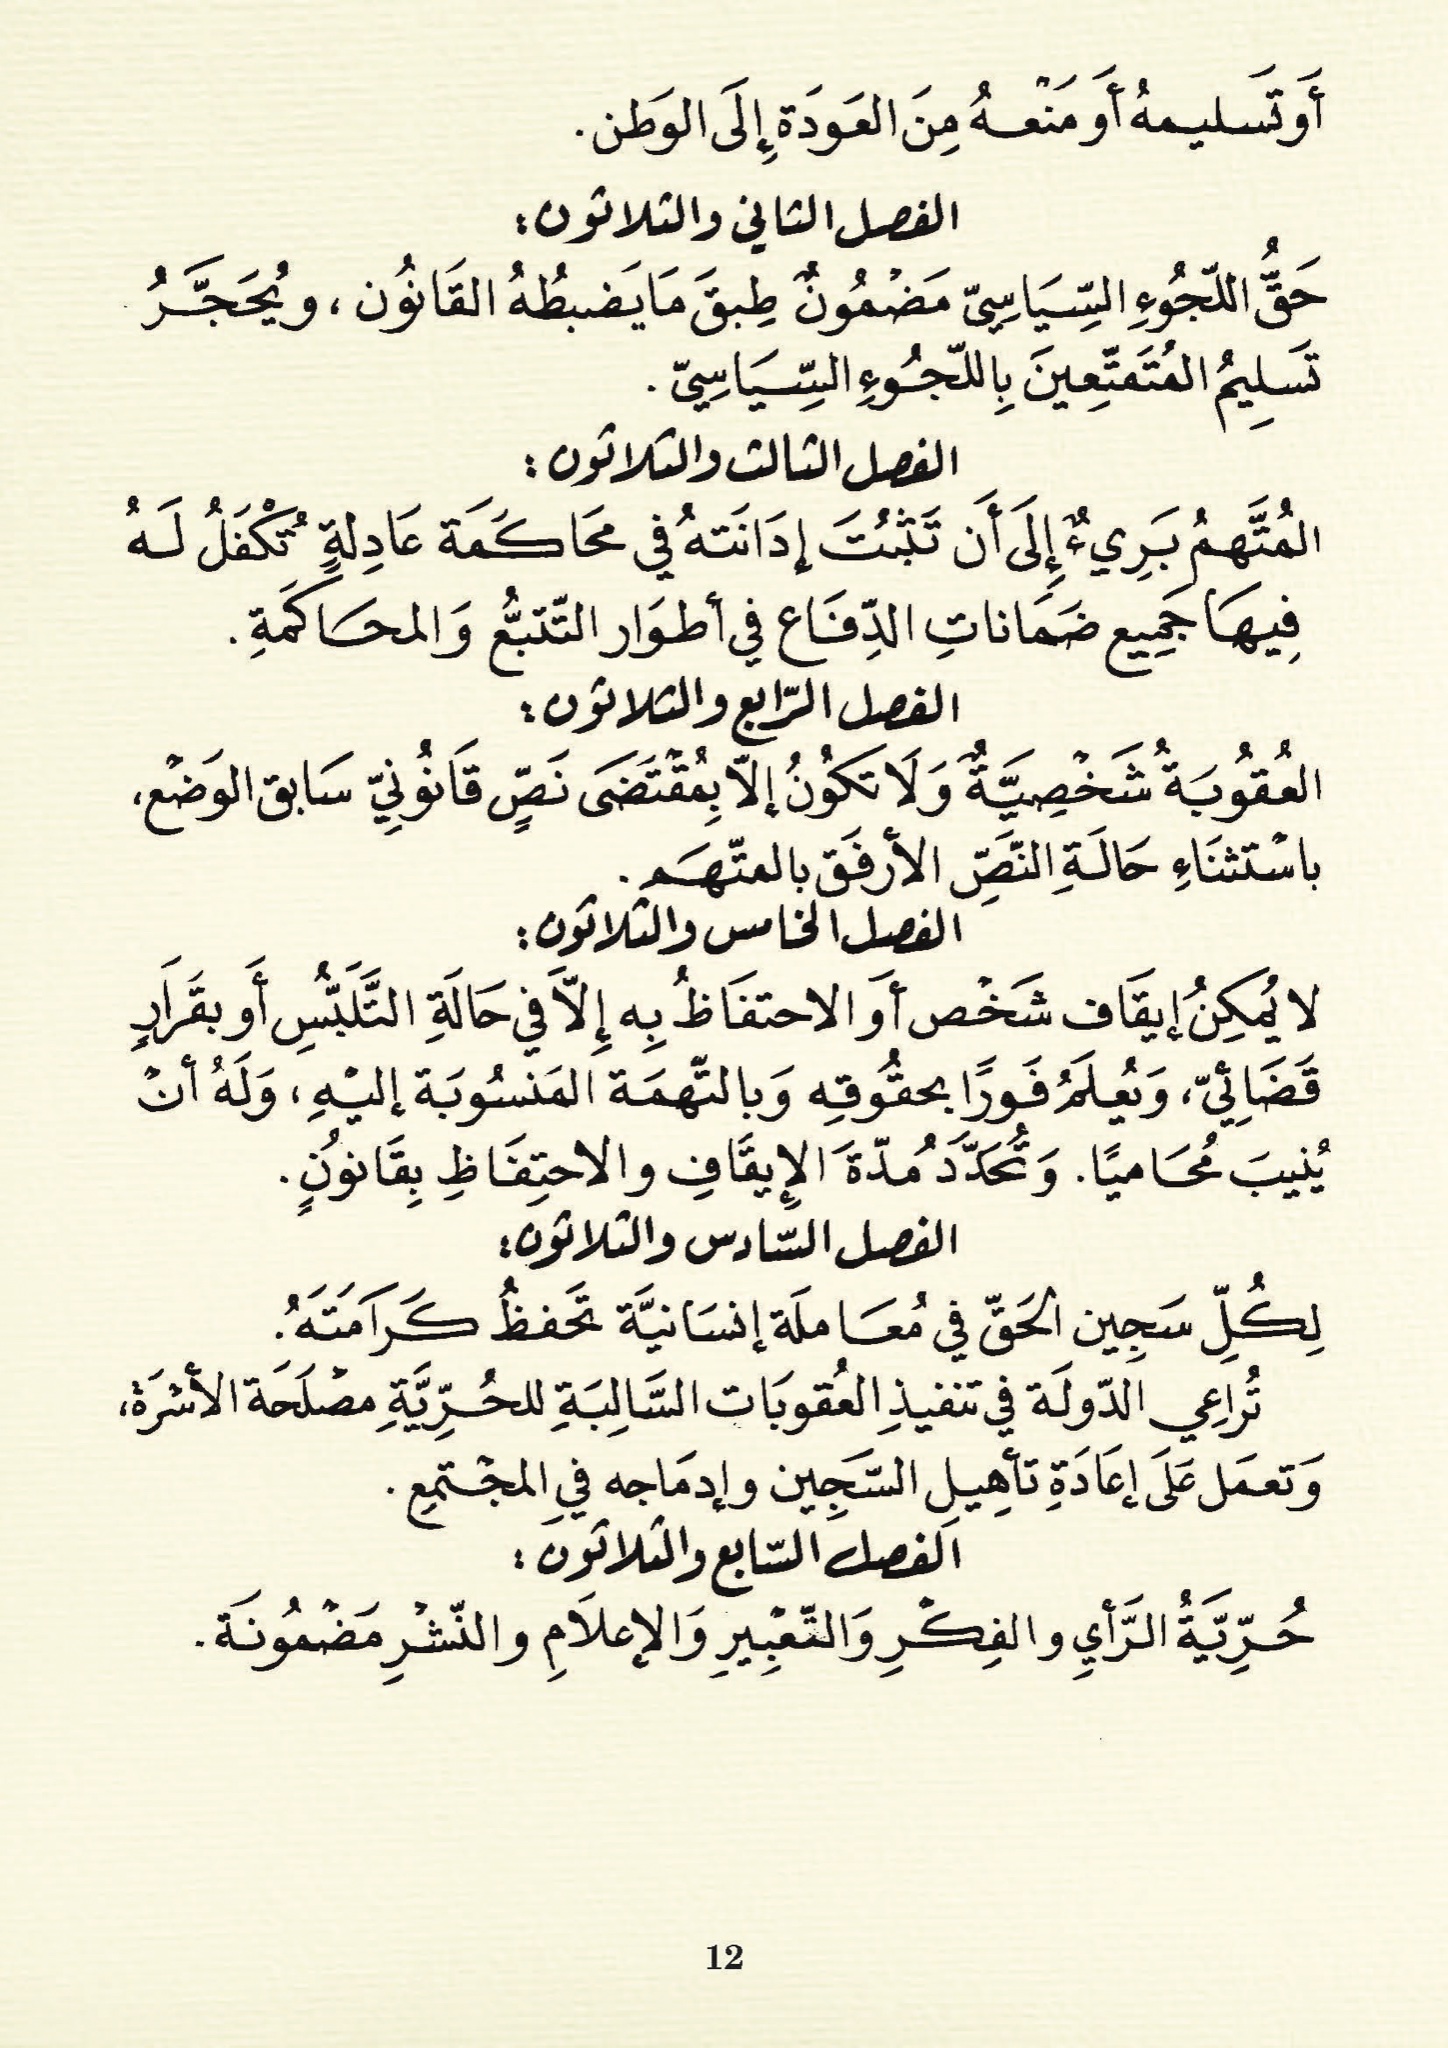 أَو تَسليمهُ أَو مَنْعهُ مِنَ العَودَة إِلَى الوَطن.
الفصل الثاني والثلاثون:
حَقُّ اللّجُوءِ السِّيَاسِيّ مَضْمُونٌ طِبقَ مَا يَضبطُهُ القَانُون، ويُحَجَّرُ
تَسَلِيمُ المُتَمَتِّعِينَ بِاللّجُوءِ السِّيَاسِيّ.
الفصل الثالث والثلاثون:
المُتَّهمُ بَرِيءٌ إِلَى أَن تَثْبُتَ إدَانَتهُ في محَاكَمَة عَادِلةٍ تُكْفَلُ لَهُ
فِيهَا جَمِيع ضَمَاناتِ الدِّفَاع في أطوَار التّتبُّع وَالمحَاكَمَةِ.
الفصل الرّابع والثلاثون:
العُقُوبَةُ شَخْصِيَّةٌ وَلَا تَكُونُ إلاّ بِمُقْتَضَى نَصٍّ قَانُونِيّ سَابق الوَضْع،
باسْتثنَاءِ حَالَةِ النَّصِّ الأرفَق بالمتّهَم.
الفصل الخامس والثلاثون:
لا يُمكِنُ إيقَاف شَخْص أَو الاحتفَاظُ بِه إِلاَّ في حَالَةِ التَّلَبُّسِ أَو بقَرَارٍ
قَضَائِيّ، وَيُعلَمُ فَورًا بحقُوقِه وَبالتّهمَة المَنسُوبَة إليْهِ، وَلَهُ أنْ
يُنيبَ مُحَاميًا. وَتُحَدَّدَ مُدّةَ الإيقَافِ والاحتِفَاظِ بِقَانونٍ.
الفصل السّادس والثلاثون:
لِكُلِّ سَجِين الحَقّ في مُعَاملَة إنسَانيَّة تَحفظُ كَرَامَتَهُ.
تُراعِي الدّولَة في تنفيذِ العُقوبَات السَّالِبَةِ للحُرِّيَّةِ مصْلَحَة الأسْرَةْ،
وَتعمَل عَلَى إعَادَةِ تأهِيلِ السّجِين وإدمَاجه في المجْتمعِ.
الفصل السّابع والثلاثون:
حُرِّيَّةُ الرَّأيِ والفِكْرِ وَالتّعْبِيرِ وَالإعلَامِ والنّشْرِ مَضْمُونَة.
12